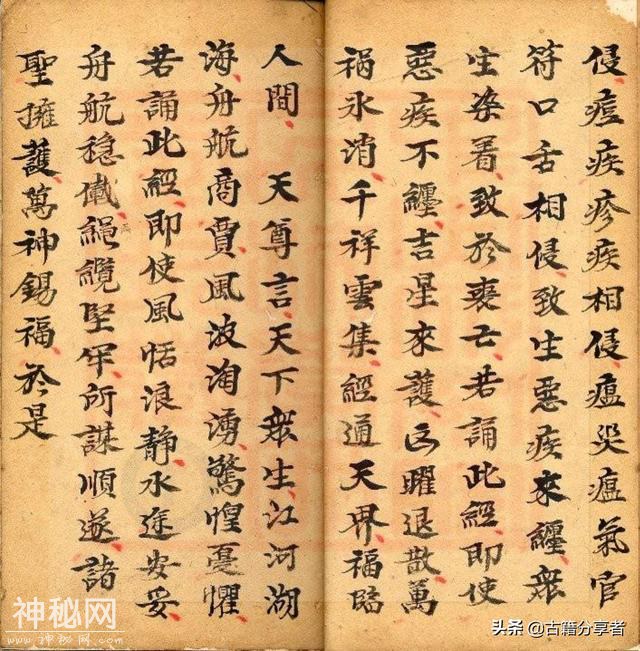 侵、痘疾疹疾相侵、瘟災瘟氣官
符口舌相侵、致生惡疾來纏、衆
生染着、致於喪亡、若誦此經、即使
惡疾不纏、吉星來護、凶曜退散、萬
祸氷消、千祥雲集、經通天界、福臨
人間、 天尊言、天下衆生、江河湖
海、舟航商賈、風波淘湧、驚惶憂懼
若誦此經、即使風恬浪静、水途安妥、
舟航穏儎、縄纜堅牢、所謀順遂、諸
聖擁護、萬神錫福、於是
神秘网
www.shenmiwang.com
头条 @古籍分享者